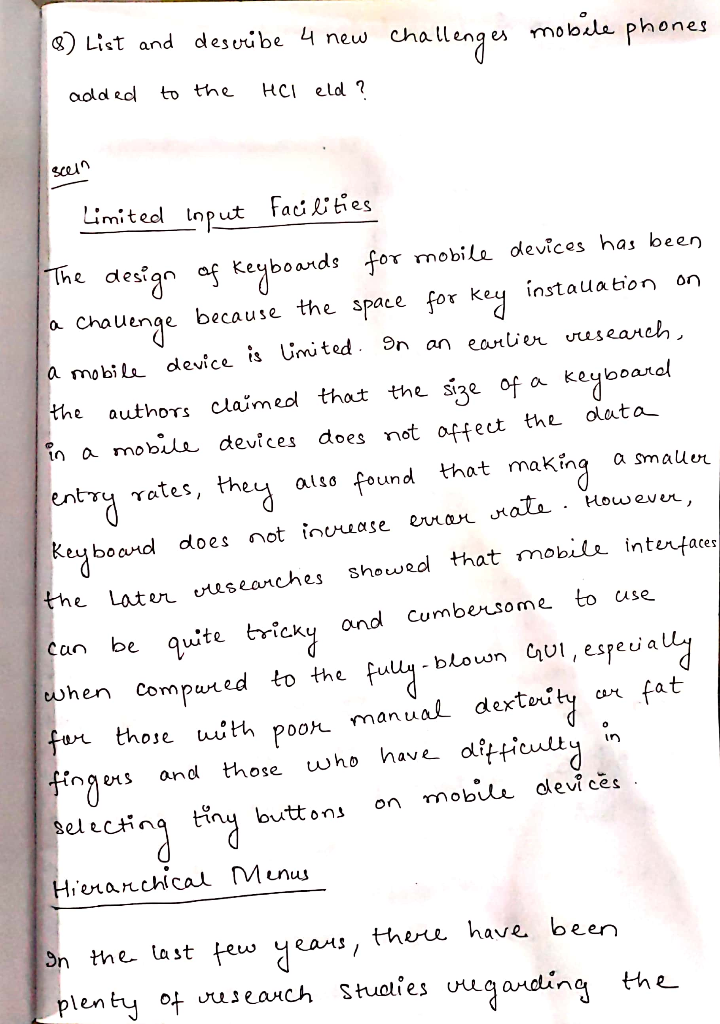 8) List and describe 4 new challenges mobile phones
added to the HCI eld ?
Limited Input Facilities
The design of Keyboards for mobile devices has been
a challenge because the space for key installation on
a mobile device is limited. In an earlier research,
the authors claimed that the size of a keyboard
in a mobile devices does not affect the data
entry rates, they also found that making a smaller
Keyboard does not increase error rate. However,
the Later researches showed that mobile interfaces
can be quite tricky and cumbersome to use
when compared to the fully-blown GUI, especially
for those with poor manual dexterity or fat
fingers and those who have difficulty in
selecting tiny buttons on mobile devices.
Hierarchical Menus
In the last few years, there have been
plenty of research studies regarding the